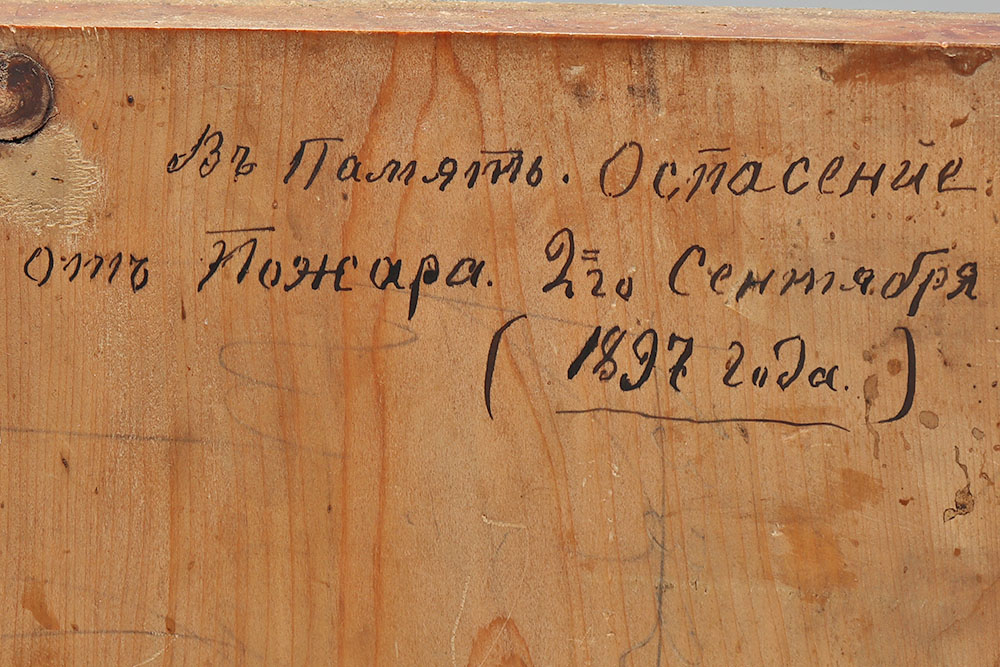 Въ Память. Оспасение
отъ Пожара. 2=го Сентября
( 1897 года. )